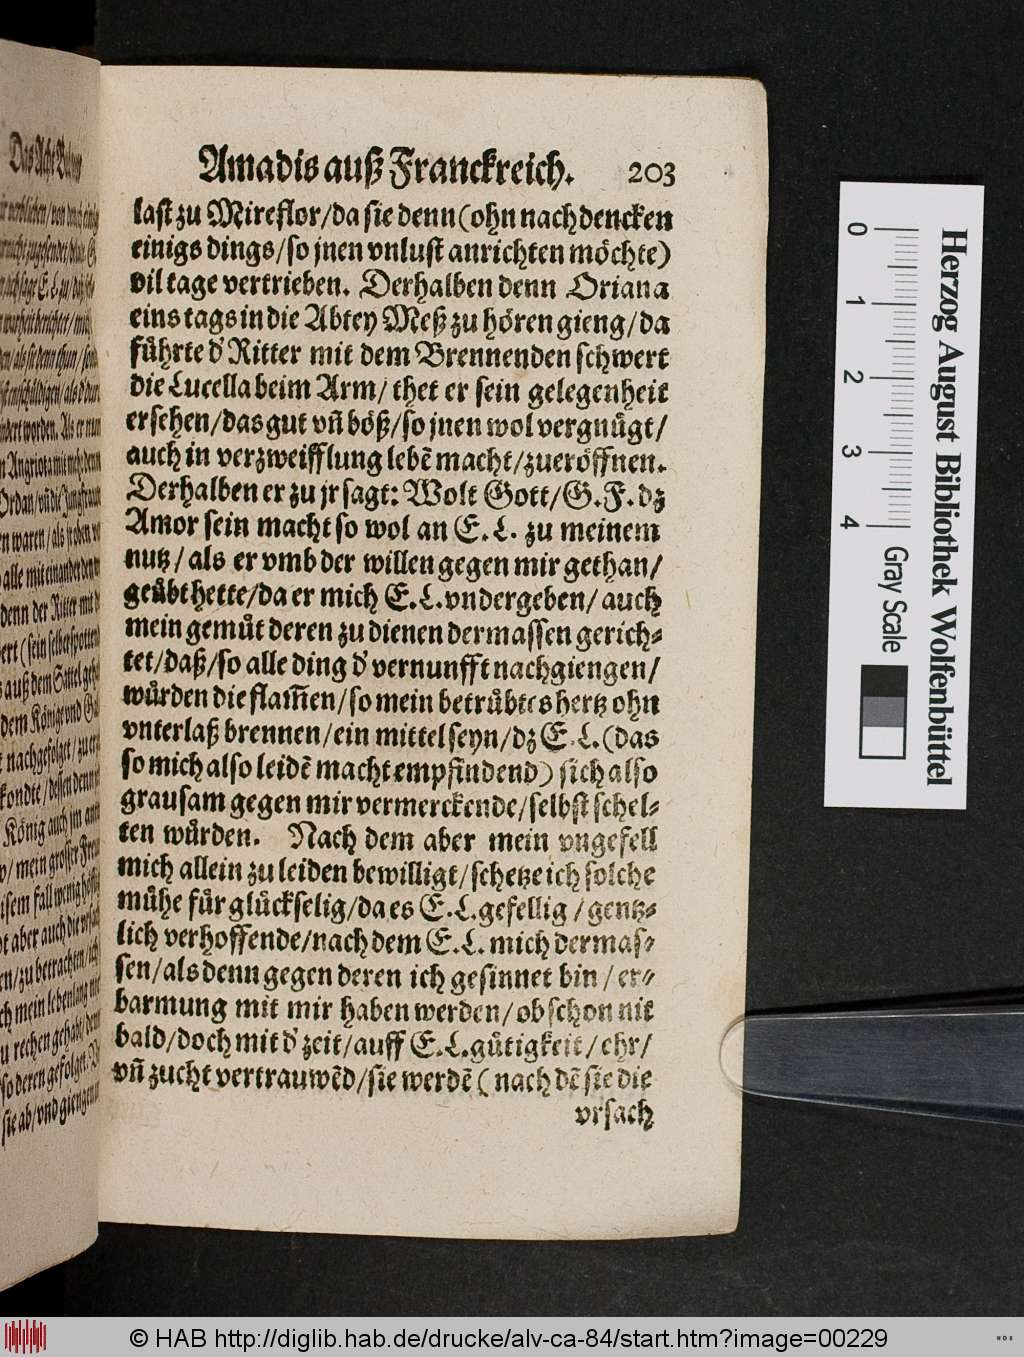 Amadis auß Franckreich. 203
last zu Mireflor/da sie denn (ohn nachdencken
einigs dings/so jnen vnlust anrichten möchte)
vil tage vertrieben. Derhalben denn Oriana
eins tags in die Abtey Meß zu hören gieng/da
führte d' Ritter mit dem Brennenden schwert
die Lucella beim Arm/ thet er sein gelegenheit
ersehen/das gut vñ böß/so jnen wol vergnügt/
auch in verzweifflung lebẽ macht/zueröffnen.
Derhalben er zu jr sagt: Wolt Gott/G.F. dz
Amor sein macht so wol an E.L. zu meinem
nutz/ als er vmb der willen gegen mir gethan/
geübt hette/da er mich E.L. vndergeben/ auch
mein gemüt deren zu dienen dermassen gerich-
tet/daß/so alle ding d' vernunfft nachgiengen/
würden die flam̃en/so mein betrübtes hertz ohn
vnterlaß brennen/ein mittel seyn/dz E.L. (das
so mich also leidẽ macht empfindend) sich also
grausam gegen mir vermerckende/selbst schel-
ten würden. Nach dem aber mein vngefell
mich allein zu leiden bewilligt/schetze ich solche
mühe für glückselig/da es E.L. gefellig/gentz-
lich verhoffende/nach dem E.L. mich dermas-
sen/als denn gegen deren ich gesinnet bin/er-
barmung mit mir haben werden/ob schon nit
bald/doch mit d' zeit/auff E.L. gütigkeit/ehr/
vñ zucht vertrauwẽd/sie werdẽ (nach dẽ sie die
vrsach
Herzog August Bibliothek Wolfenbüttel
0 1 2 3 4 Gray Scale
© HAB http://diglib.hab.de/drucke/alv-ca-84/start.htm?image=00229